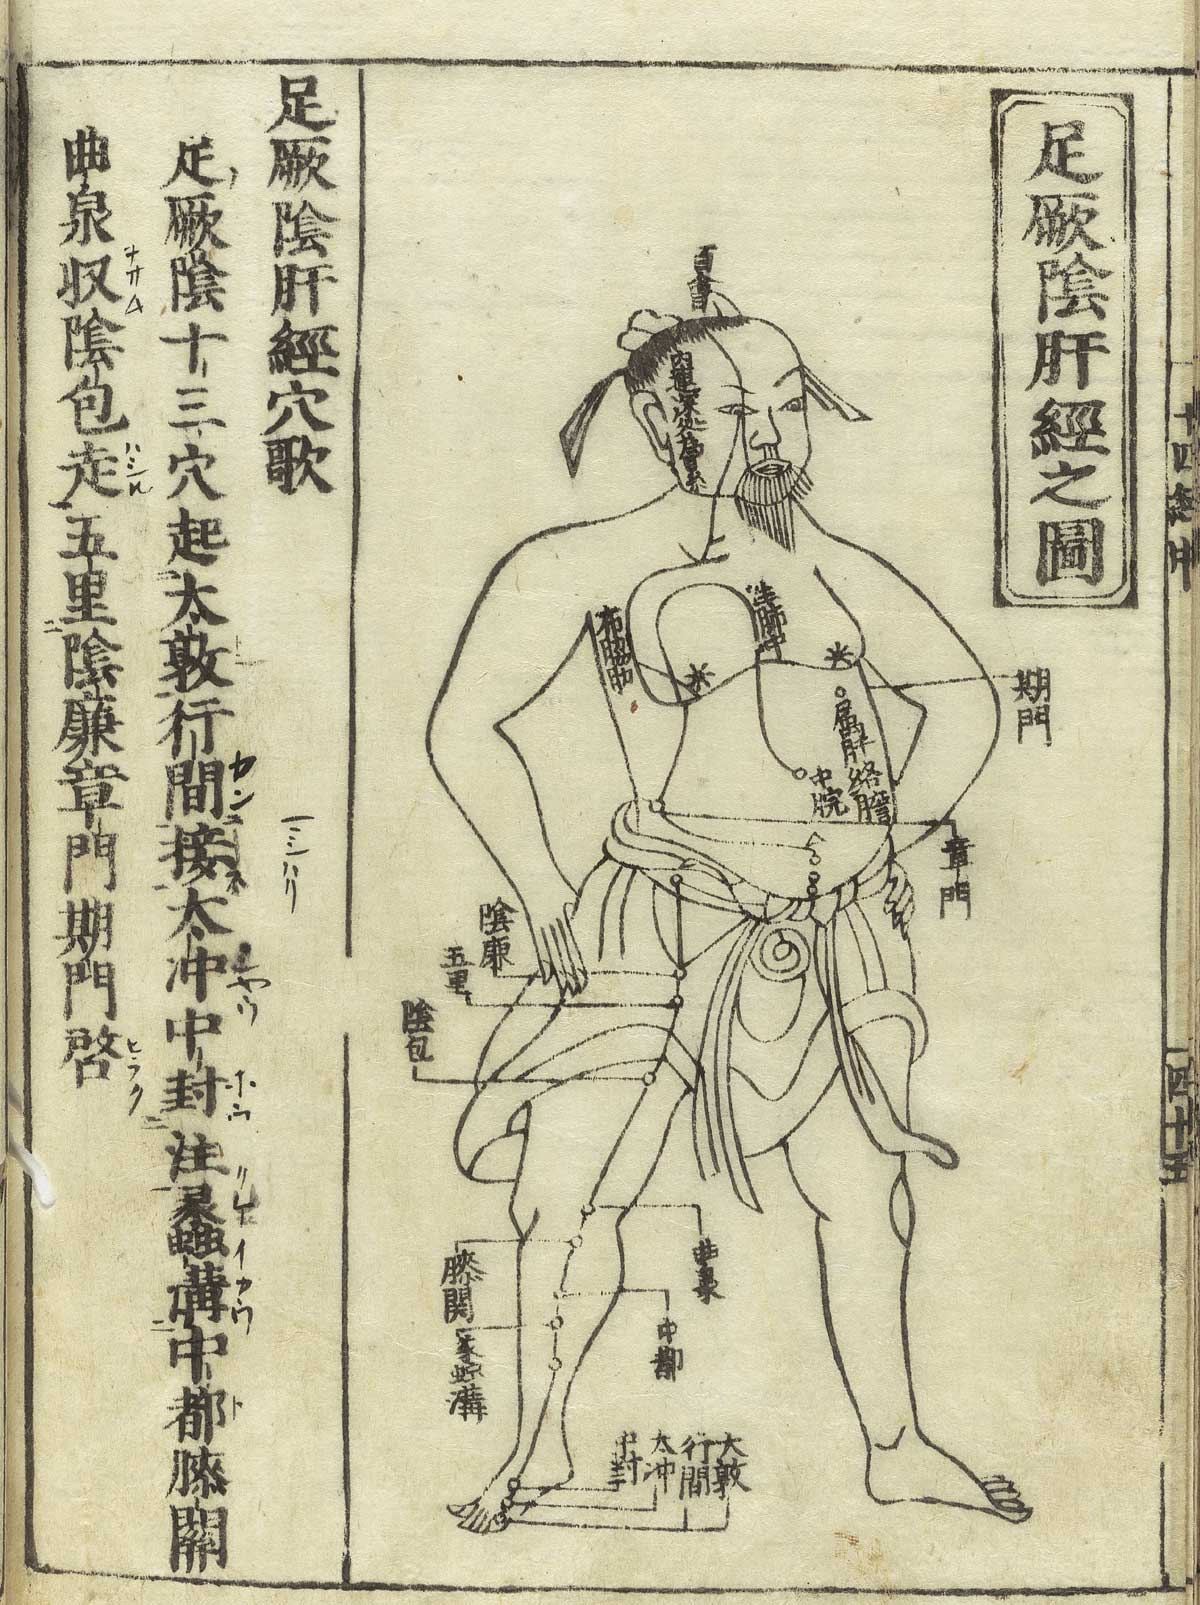 足厥陰肝經之圖
百會
布脇肋
注肺中
期門
屬肝
絡膽
中脘
章門
陰廉
五里
陰包
曲泉
膝関
中都
蠡溝
大敦
行間
太冲
中封
足厥陰肝經穴歌
足厥陰十三穴起太敦行間接太冲中封注蠡溝中都膝關
曲泉収陰包走五里陰廉章門期門啓
十四經中
四十五